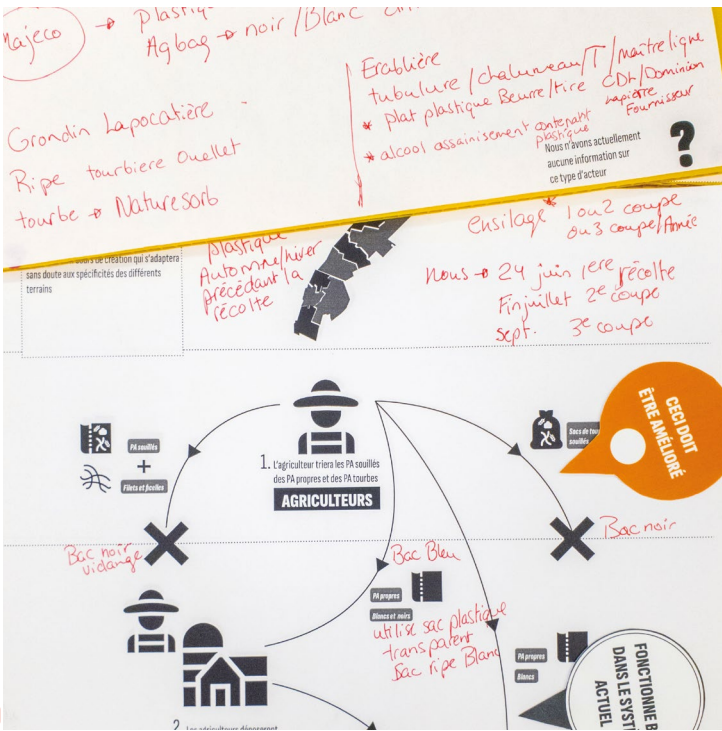 Majeco
→ Plastiq
Agbag → noir / Blanc
Grondin Lapocatière
Ripe tourbiere Ouellet
tourbe → Naturesorb
Erablière
tubulure / chalumeau / T / maître ligne
* plat plastique Beurre / tire
CDL / Dominion
Lapierre
Fournisseur
* alcool assainisement contenant
plastique
Nous n'avons actuellement
aucune information sur
ce type d'acteur
?
cours de création qui s'adaptera
sans doute aux spécificités des différents
terrains
plastique
Automne/hiver
précédant la
récolte
ensilage * 1 ou 2 coupe
ou 3 coupe/Année
Nous → 24 juin 1ere récolte
Fin juillet 2e coupe
sept. 3e coupe
PA souillés
+
Filets et ficelles
1. L'agriculteur triera les PA souillés
des PA propres et des PA tourbes
AGRICULTEURS
Sacs de
souillés
CECI DOIT
ÊTRE AMÉLIORÉ
Bac noir
vidange
Bac noir
Bac Bleu
PA propres
Blancs et noirs
utilise sac plastique
transparent
Sac ripe Blanc
PA propres
Blancs
FONCTIONNE B
DANS LE SYSTÈ
ACTUEL
2. Les agriculteurs déposeront